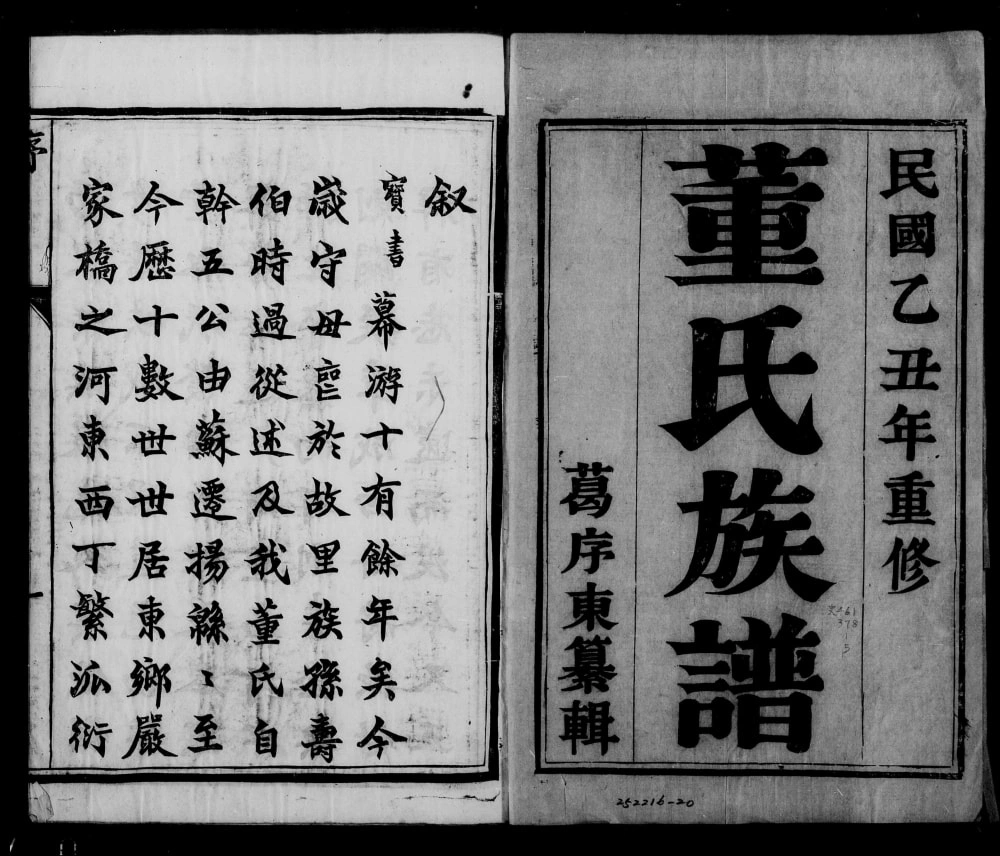 民國乙丑年重修
董氏族譜
葛序東纂輯
252216-20
叙
寶書幕游十有餘年矣今
歲守母䘮於故里族孫壽
伯時過從述及我董氏自
幹五公由蘇遷揚緜〻至
今歷十數世世居東鄉嚴
家橋之河東西丁繁派衍
序